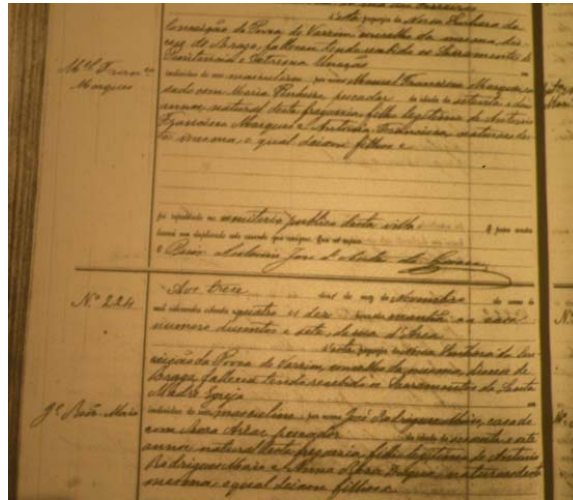 d'esta freguezia de Nossa Senhora da
Conceição da Povoa de Varzim, concelho da mesma, dio-
cese de Braga, falleceu tendo recebido os Sacramentos da
Penitencia e Extrema Uncção
Mel Franco
Marques
individuo do sexo masculino, por nome Manuel Francisco Marques, ca-
sado com Maria Pinheiro, pescador de idade de setenta e
annos, natural desta freguezia, filho legitimo de Antonio
Francisco Marques e Antonia naturaes des-
ta mesma, o qual deixou filhos e
foi sepultado no cemiterio publico desta villa E para constar
lavrei em duplicado este assento que assigno. Era ut supra.
O José
Nº 224
Aos treze dias do mez de Novembro do anno de
mil oitocentos oitenta quatro ás dez horas da manhã na casa
numero duzentos e sete, da rua d'Areia
d'esta freguezia de Nossa Senhora da Con-
ceição da Povoa de Varzim, concelho da mesma, diocese de
Braga, falleceu tendo recebido os Sacramentos da Santa
Madre Igreja
Je Roiz Maio
individuo do sexo masculino, por nome José Rodrigues Maio, casado
com pescador de idade de sessenta e sete
annos, natural desta freguezia, filho legitimo de Antonio
Rodrigues Maio e Anna naturaes desta
mesma, o qual deixou filhos e